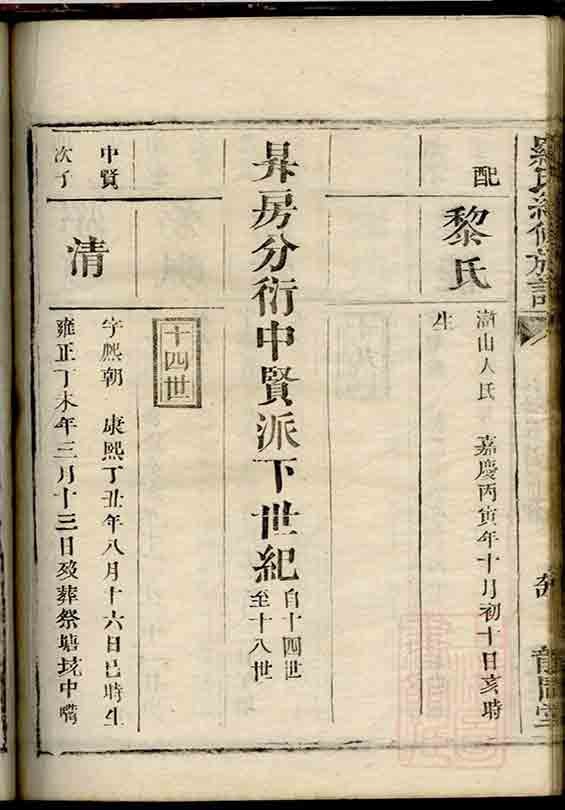 羅氏續修族譜
配
黎氏
嘉慶丙寅年十月初十日亥時
生
昇房分衍中賢派下世紀
自十四世
至十八世
十四世
中賢
次子
清
字熙朝 康熙丁丑年八月十六日巳時生
雍正丁未年三月十三日歿葬祭塘坑中嘴